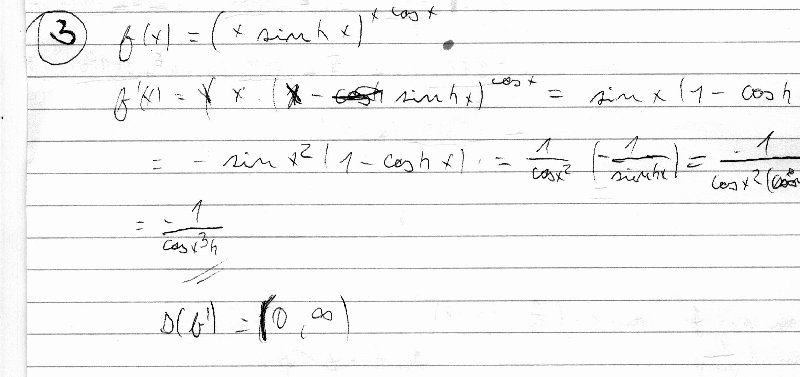 3 f(x) = (x sinh x)^{x cos x}
f'(x) = x · (x - sinh x)^{cos x} = sin x (1 - cosh
= - sin x² (1 - cosh x) · = 1/cos x² (-1/sinh x) = 1/cos x² (
= -1/cos x³h
D(f') = (0, ∞)